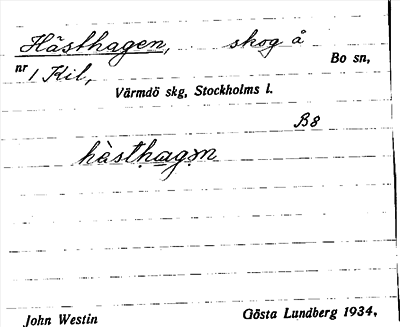 Hästhagen, skog å
Bo sn,
nr 1 Kil,
Värmdö skg, Stockholms l.
B8
hàsthagən
John Westin Gösta Lundberg 1934.